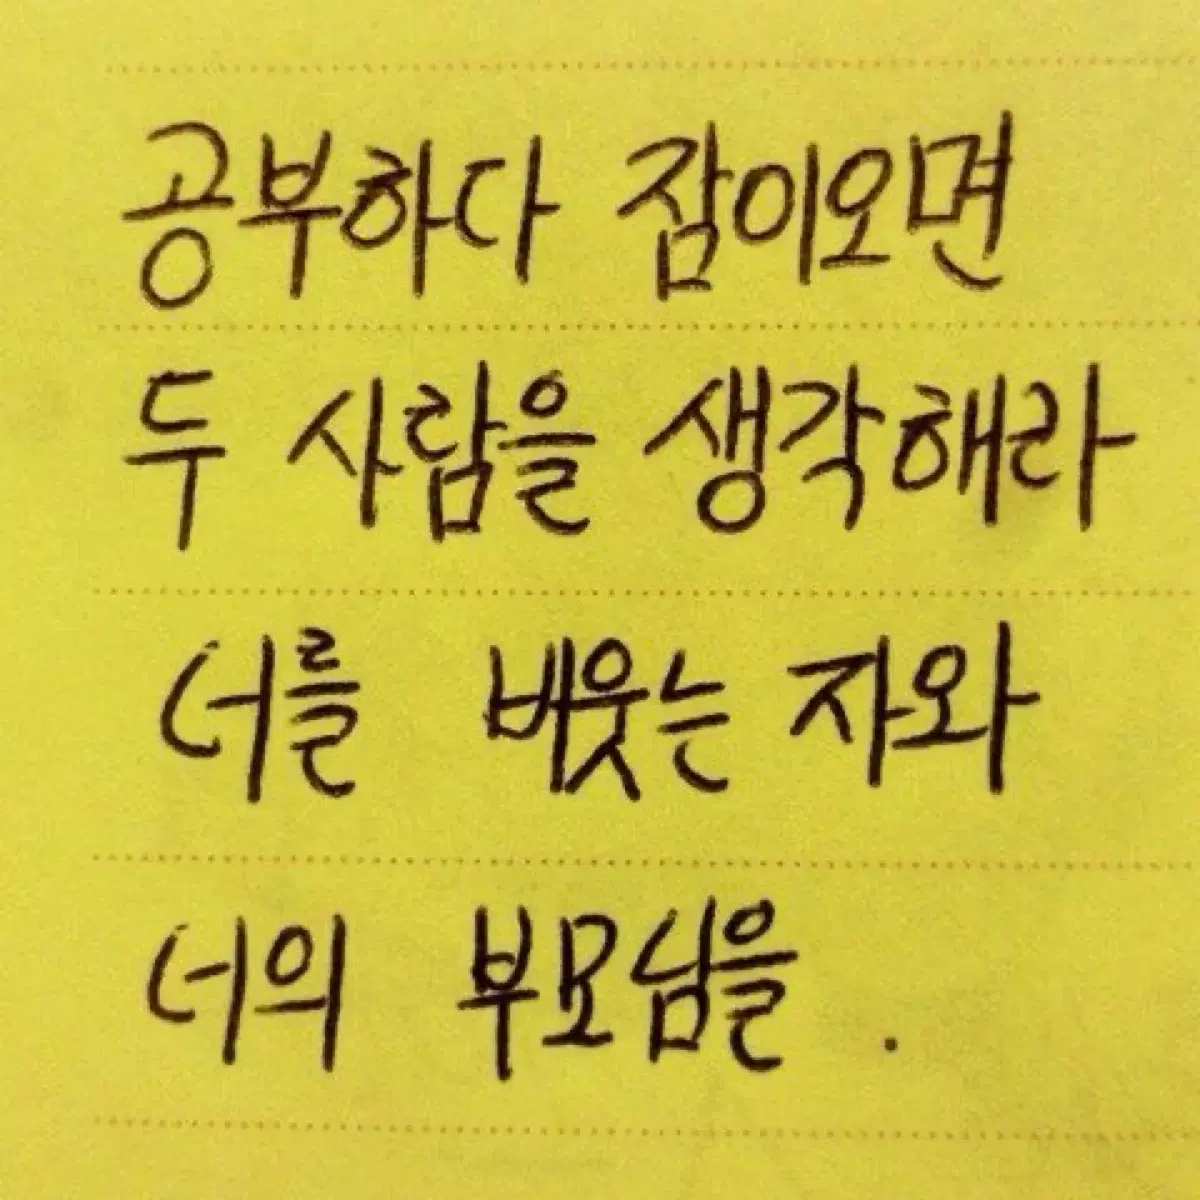 공부하다 잠이오면
두 사람을 생각해라
너를 비웃는 자와
너의 부모님을 .